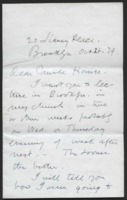 20 Sidney Place.
Brooklyn Oct 29
Dear Cousin
I want you to lec-
ture in Brooklyn in
my church in two
or three weeks probably
on Wed or Thursday
evening of week after
next
the better.
I will tell you
how I am going to